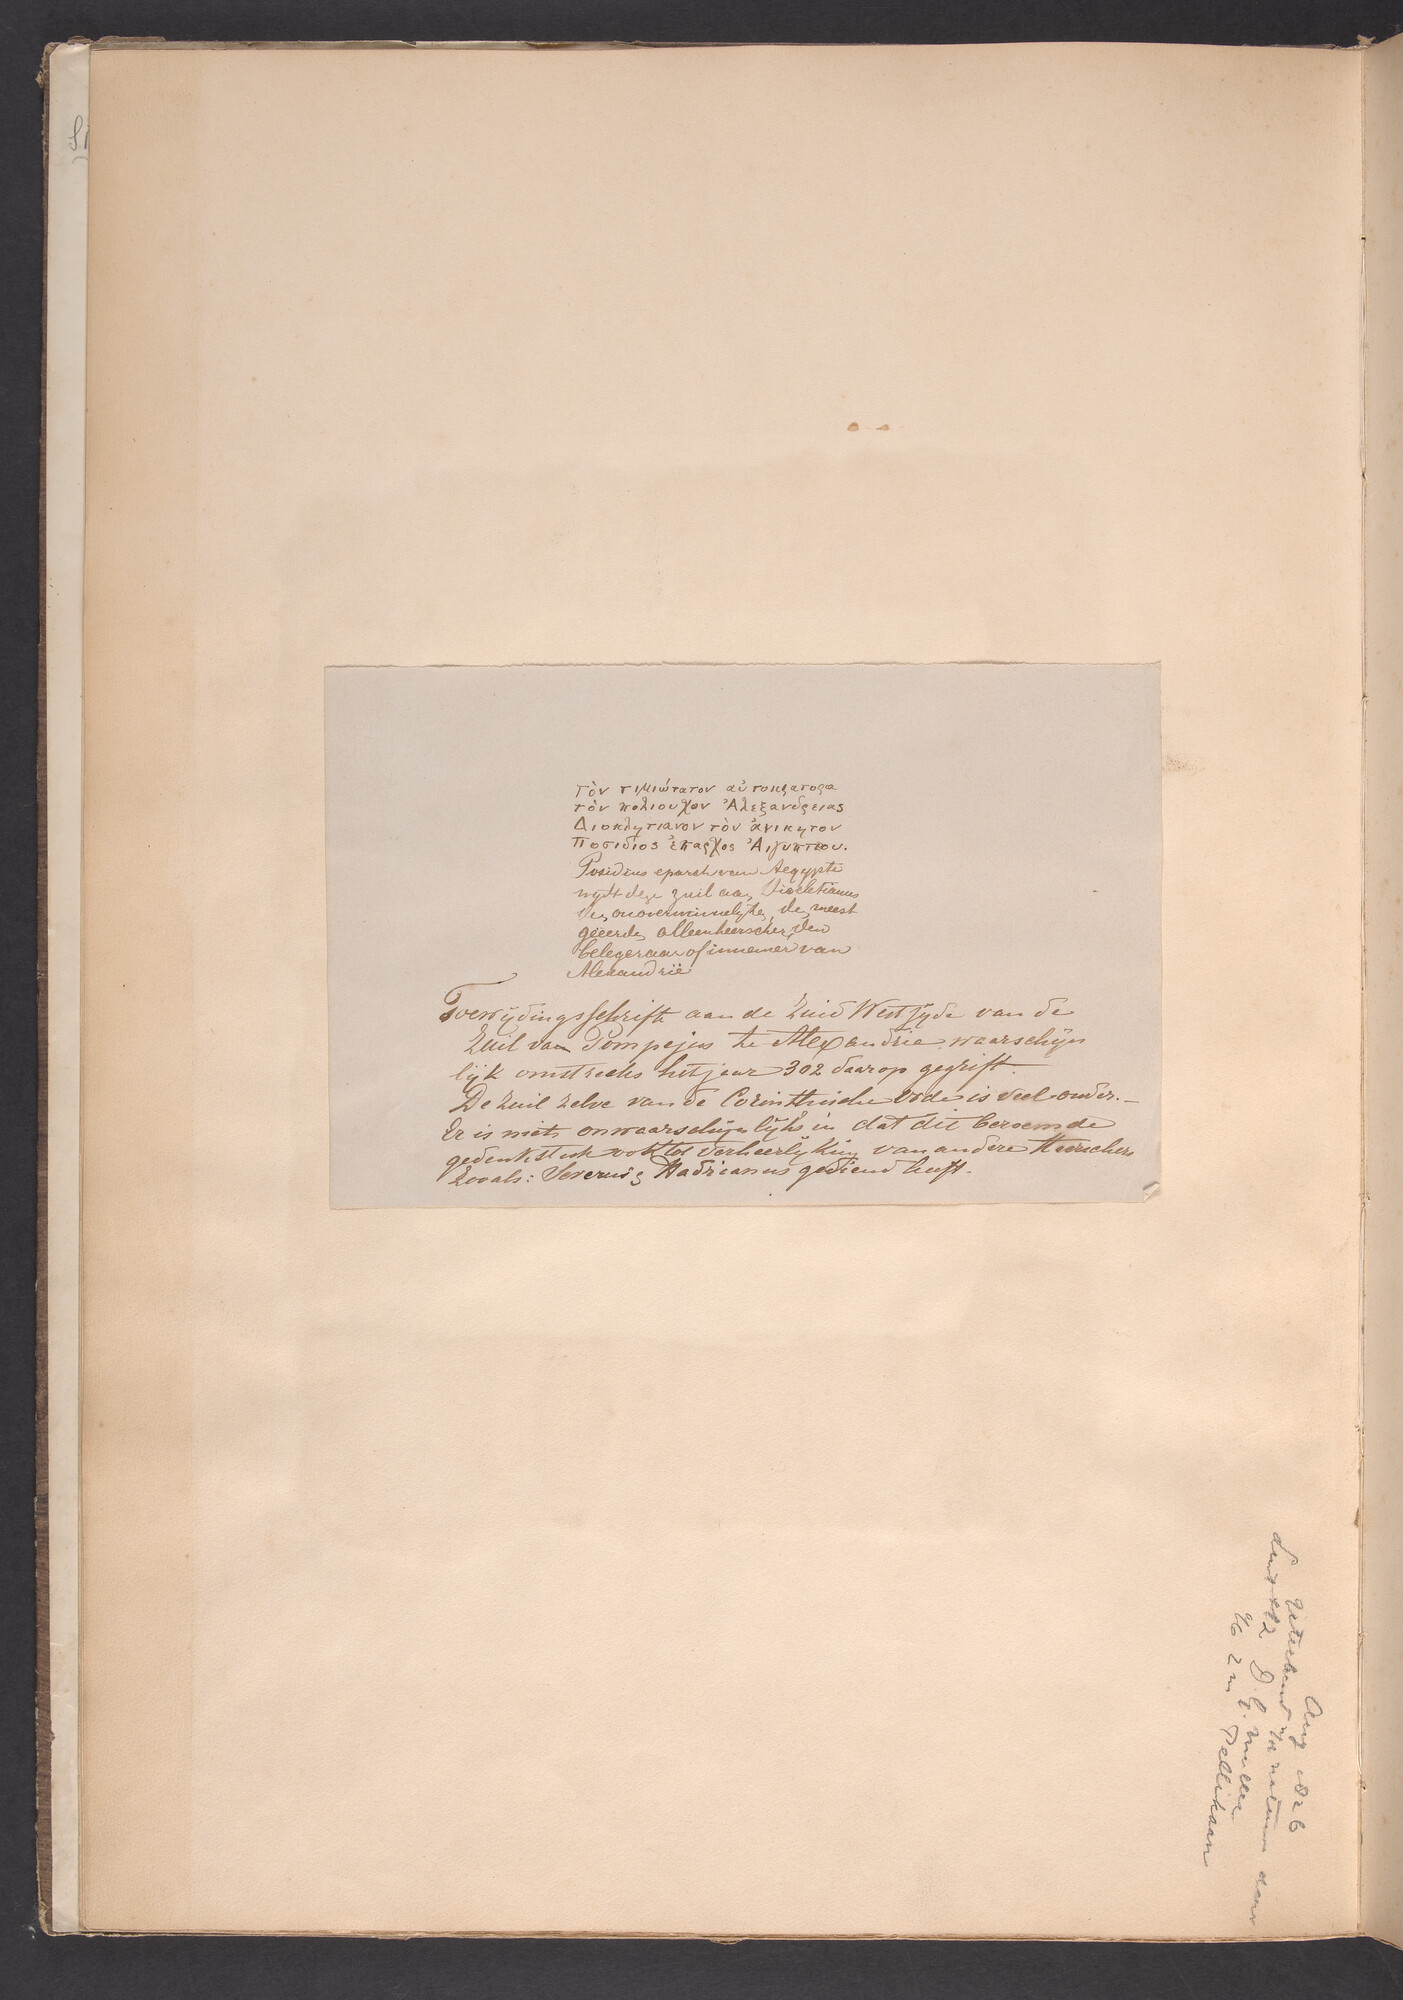 τὸν τιμιώτατον αὐτοκρατορα
τὸν πολιουχον Ἀλεξανδρειας
Διοκλητιανον τὸν ἀνικητον
Ποσιδιος ἐπαρχος Ἀιγυπτου.
Posidius eparch van Aegypte
wydt deze zuil aan Diocletianus
den onoverwinnelyke, de meest
geëerde alleenheerscher, den
belegeraar of innemer van
Alexandrië
Toewijdingsschrift aan de Zuid West zyde van de
Zuil van Pompejus te Alexandrie waarschijn
lijk omstreeks het jaar 302 daarop gegrift.
De zuil zelve van de Corinthische orde is veel ouder. —
Er is niets onwaarschijnlijks in dat dit beroemde
gedenkstuk ook tot verheerlijking van andere Heerschers
zooals: Severus, Hadrianus gediend heeft.
Aug 1826
geteekend n/d natuur door
Luit ter Z D. G. Muller
Z m Pellikaan